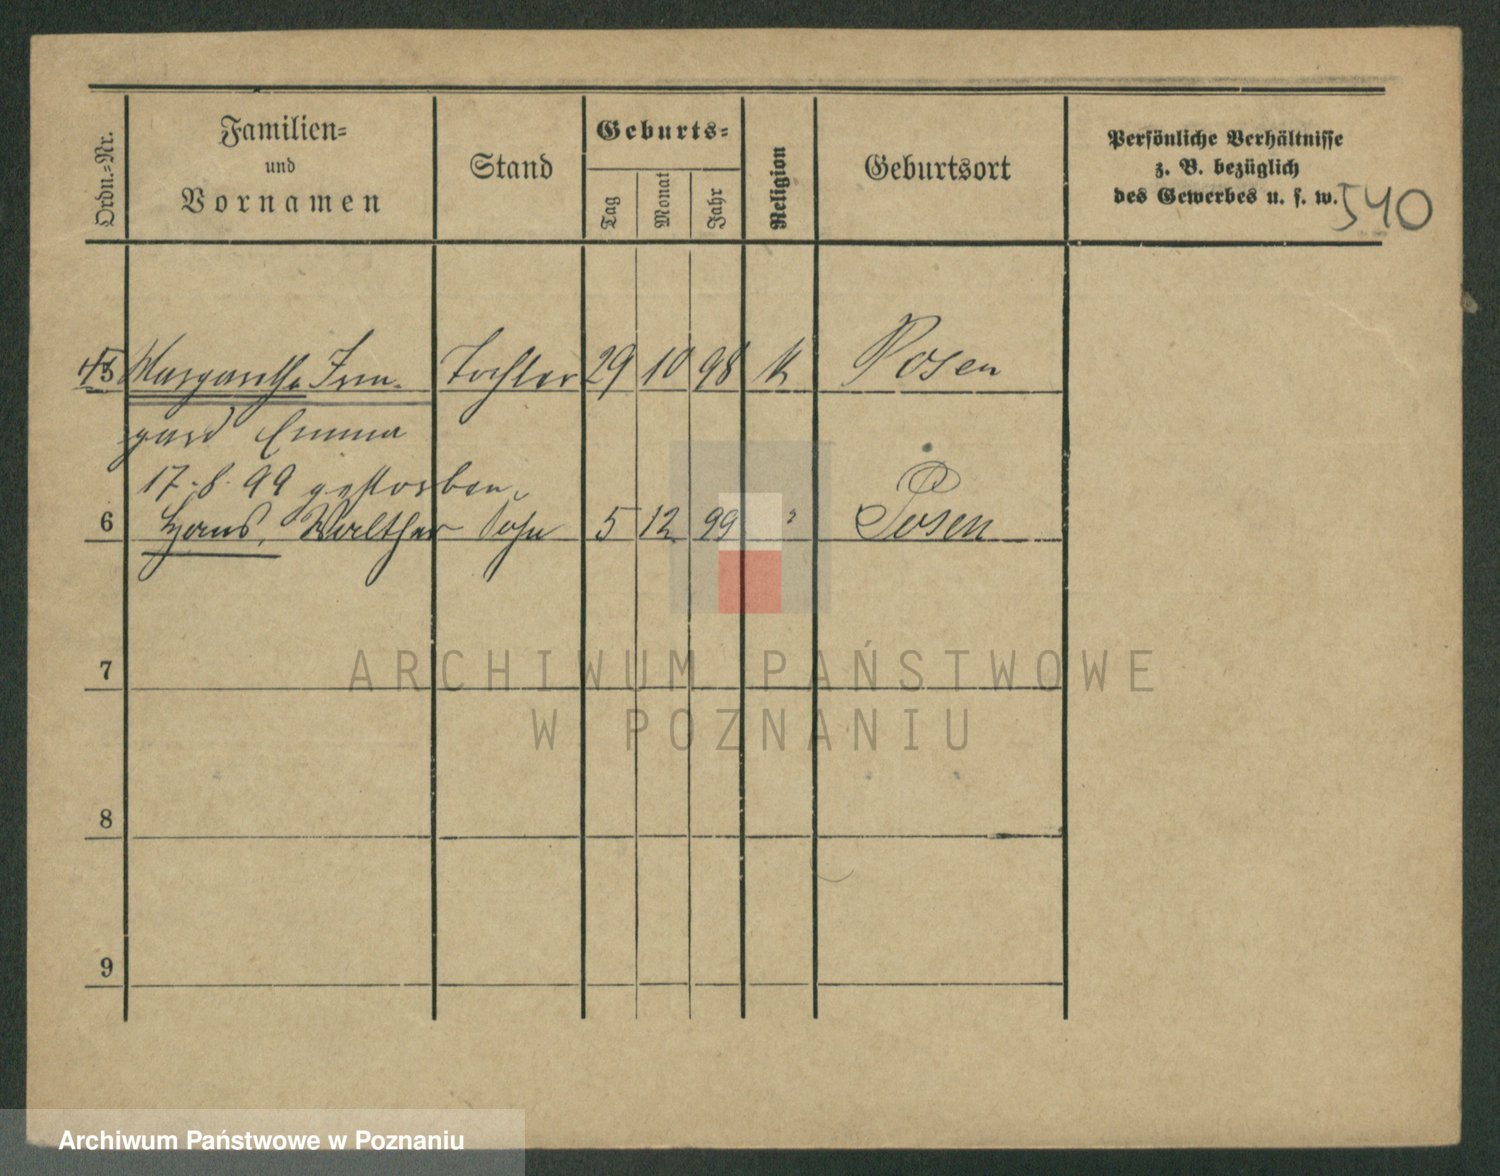 Ordn.=Nr.
Familien=
und
Vornamen
Stand
Geburts=
Tag
Monat
Jahr
Religion
Geburtsort
Persönliche Verhältnisse
z. B. bezüglich
des Gewerbes u. s. w.
540
5 Margarethe Irm- Tochter 29 10 98 K Posen
gard Emma
17.8.99 gestorben
6 Hans, Walther Sohn 5 12 99 " Posen
7
8
9
ARCHIWUM PAŃSTWOWE
W POZNANIU
Archiwum Państwowe w Poznaniu